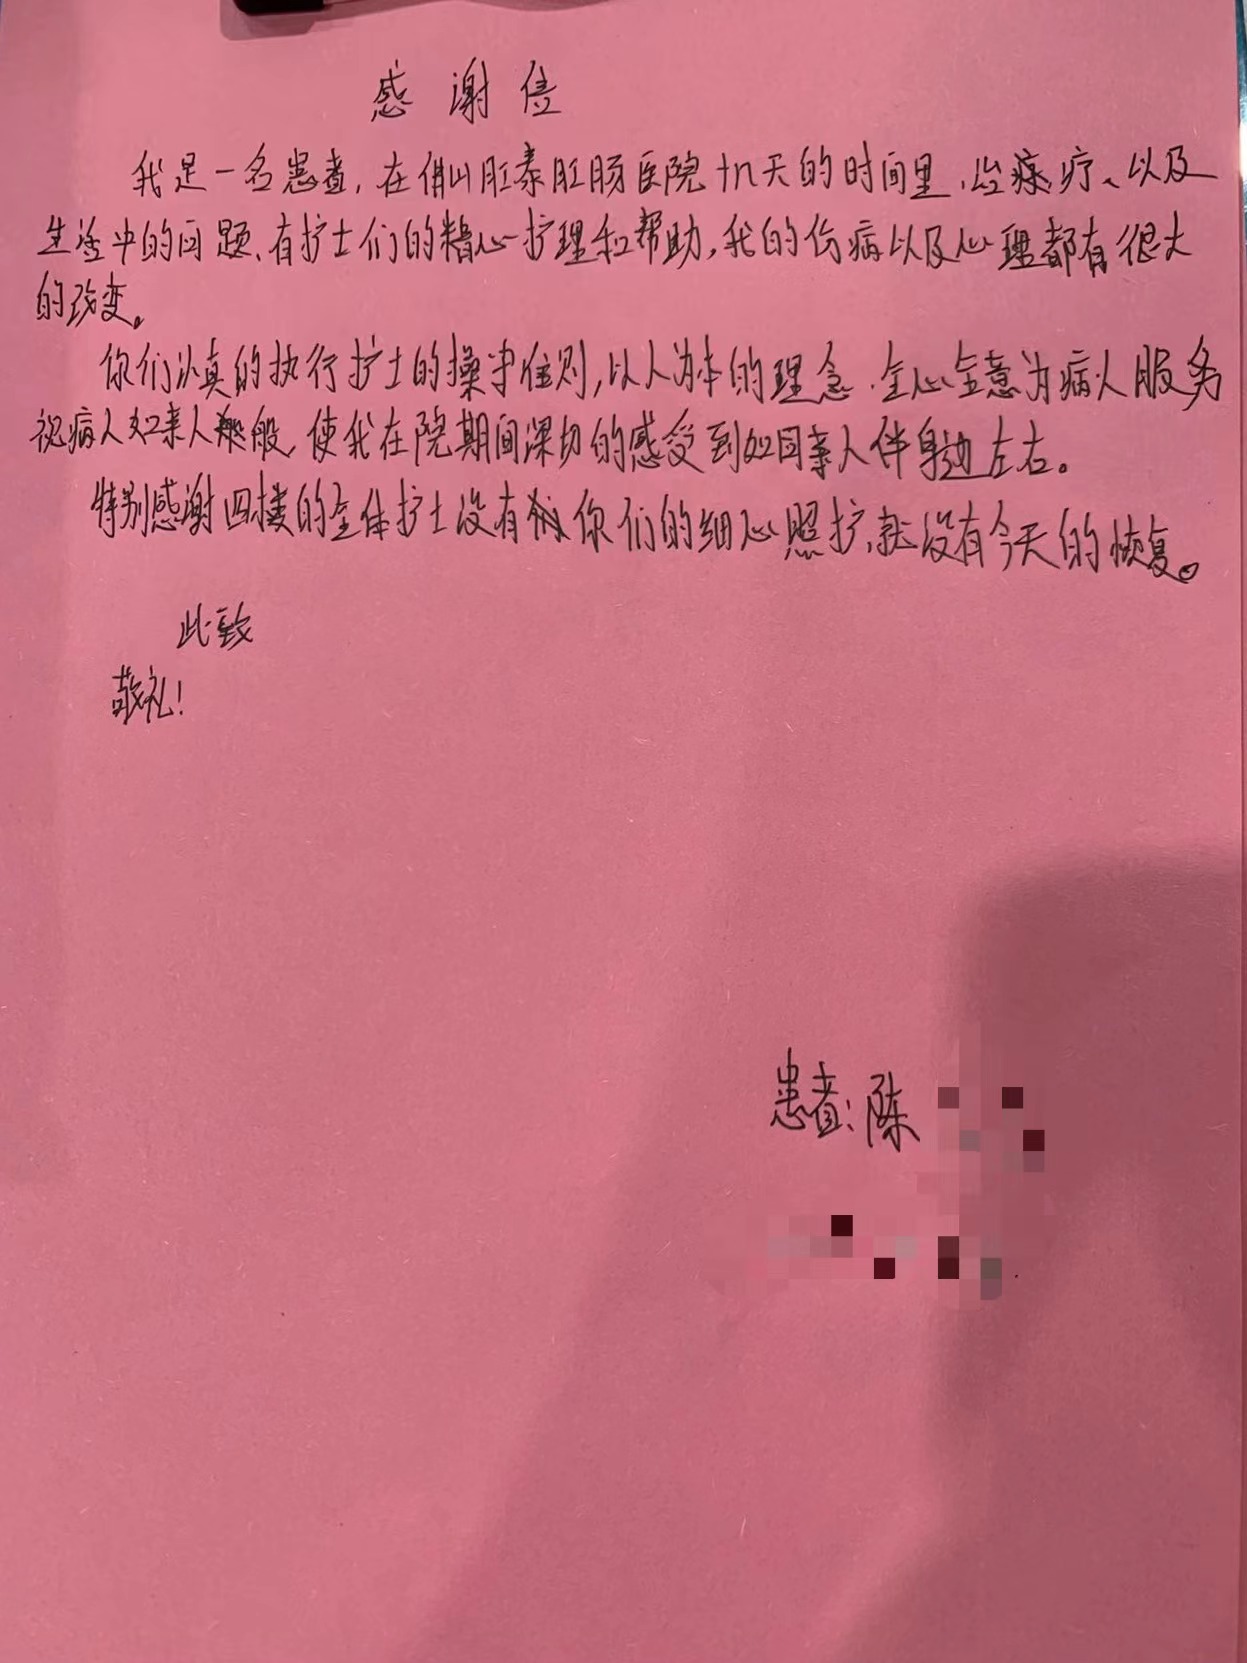 感谢信
我是一名患者，在佛山肛泰肛肠医院十几天的时间里、治疗、以及
生活中的问题、有护士们的精心护理和帮助，我的伤病以及心理都有很大
的改变。
你们认真的执行护士的操守准则，以人为本的理念、全心全意为病人服务
视病人如亲人般，使我在院期间深切的感受到如同亲人伴身边左右。
特别感谢四楼的全体护士没有你们的细心照护，就没有今天的恢复。
此致
敬礼！
患者：陈